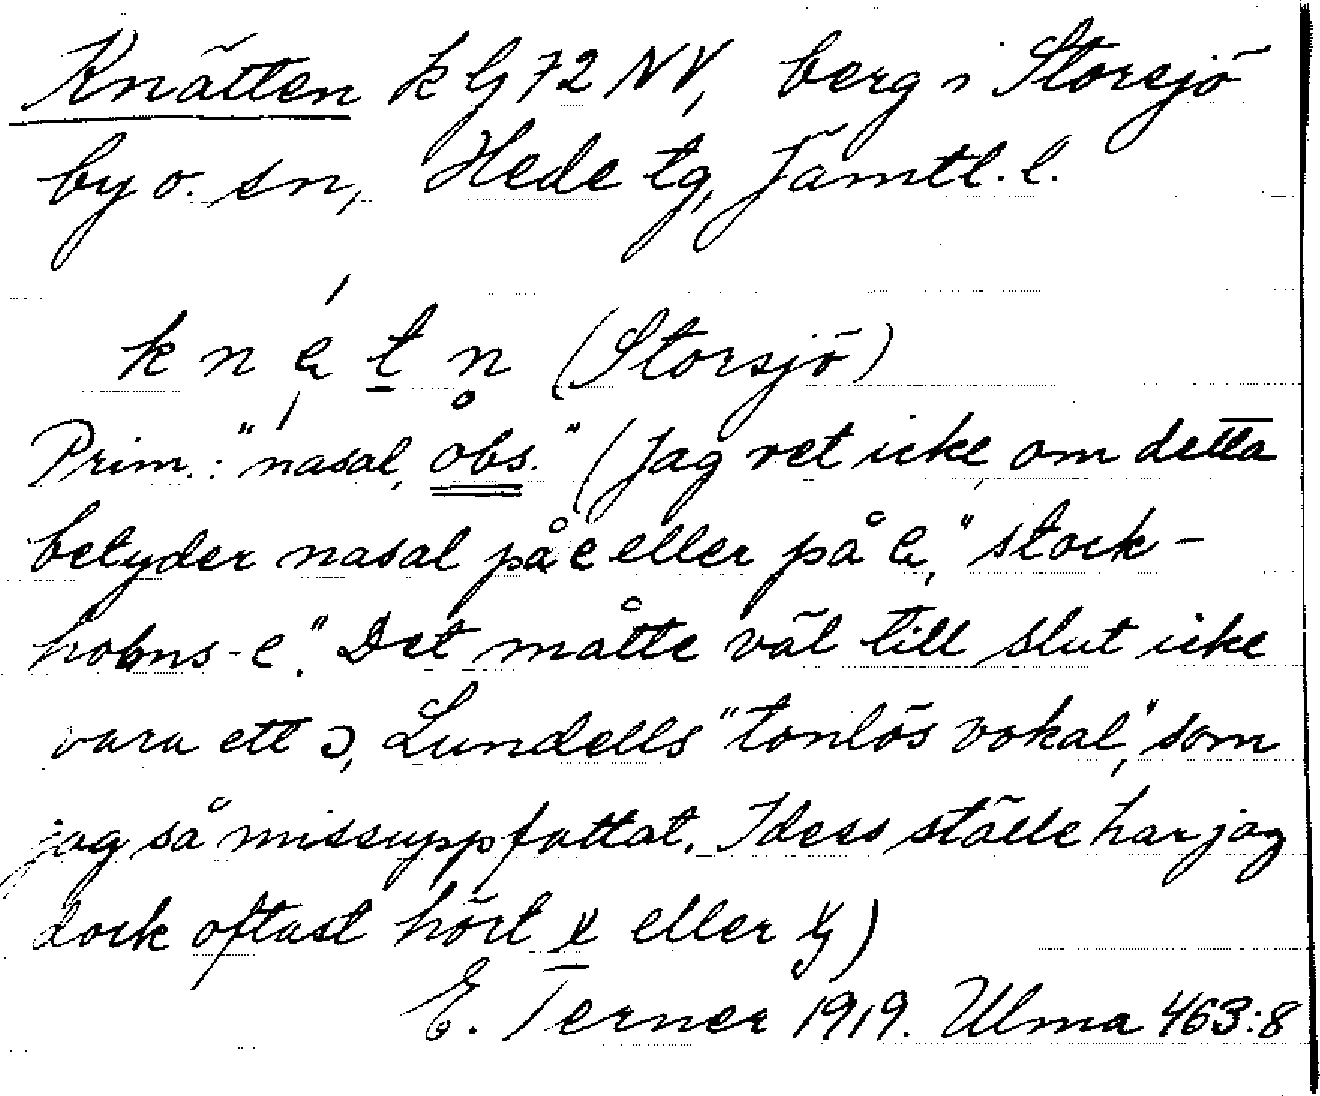 Knätten k G 72 NV, berg i Storsjö
by o. sn, Hede tg, Jämtl. l.
k n e t n (Storsjö)
Prim.: "nasal, obs." (Jag vet icke, om detta
betyder nasal på e eller på e, "stock-
holms-e". Det måtte väl till slut icke
vara ett ɔ, Lundells "tonlös vokal", som
jag så missuppfattat. I dess ställe har jag
dock oftast hört eller )
E. Terner 1919. Ulma 463:8